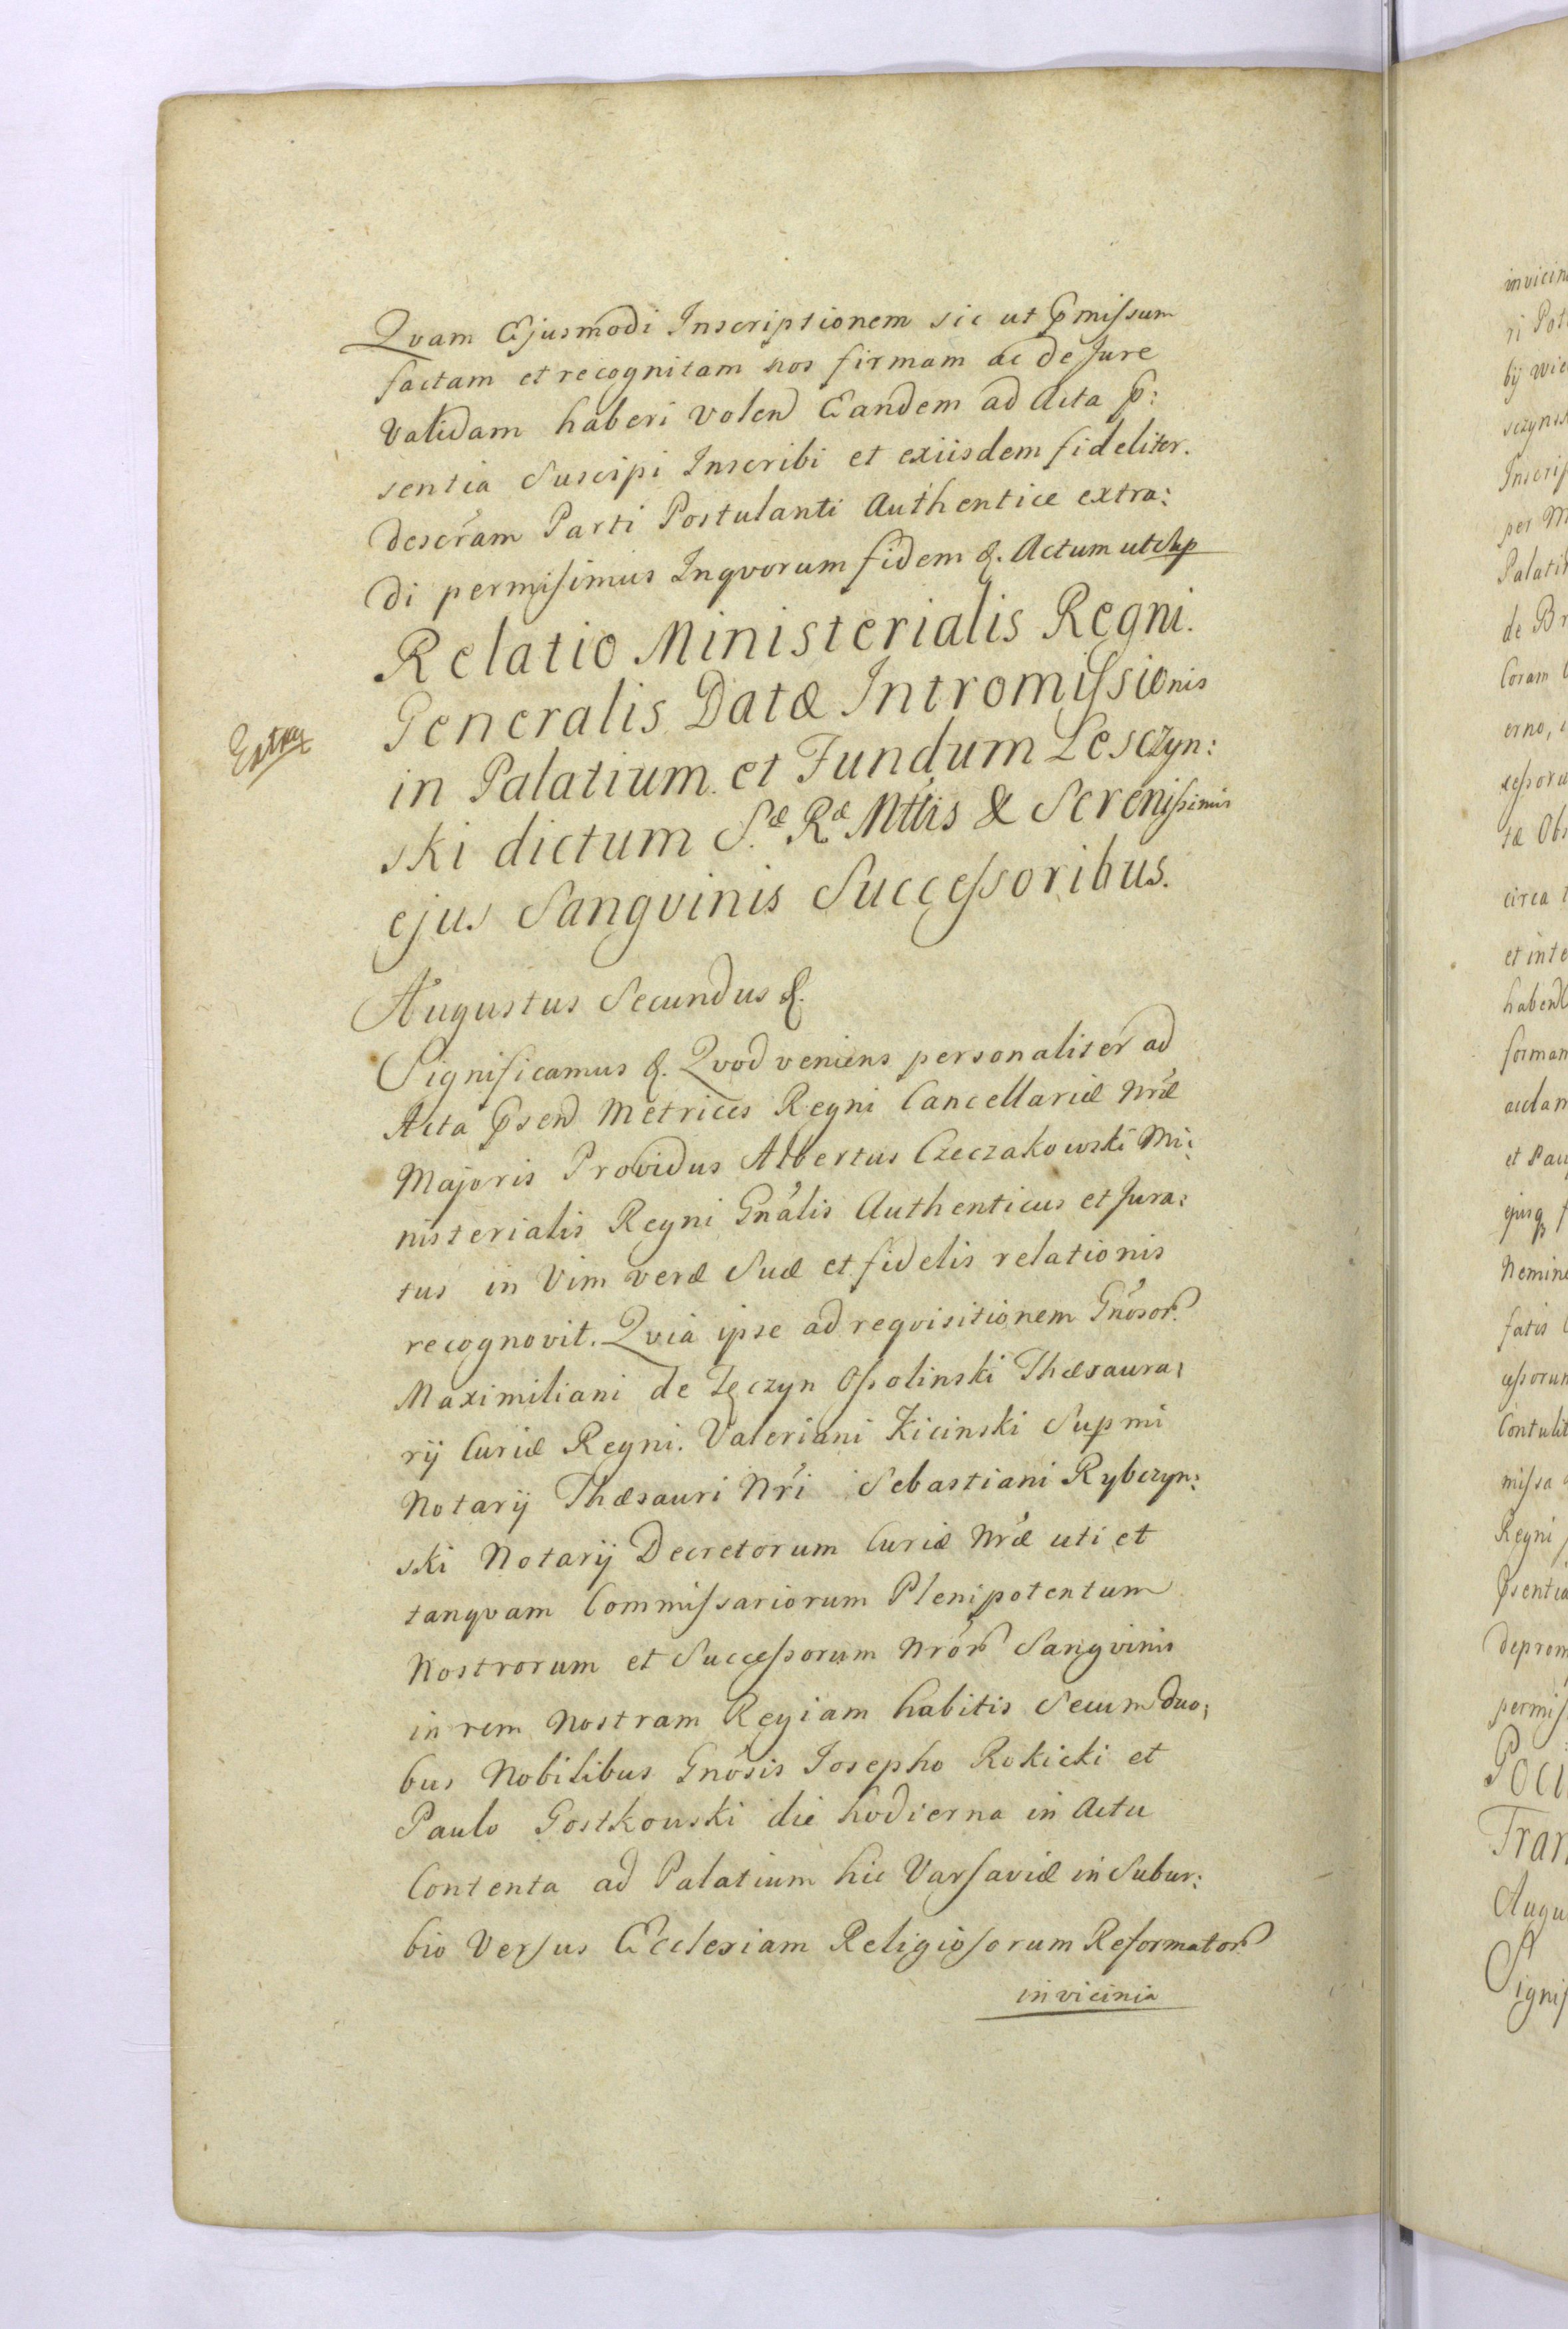 Qvam Ejusmodi Inscriptionem sic ut p̄missum
factam et recognitam nos firmam ac de Jure
Validam haberi volen̄ Eandem ad Acta p̄:
sentia Suscipi Inscribi et exiisdem fideliter.
descr̄am Parti Postulanti Authentice extra:
di permisimus Inqvorum fidem &. Actum ut sup
Extra
Relatio Ministerialis Regni.
Generalis Datæ Intromissionis
in Palatium et Fundum Lesczyn:
ski dictum S.æ R.æ Mttis & Serenissimis
ejus Sangvinis Successoribus.
Augustus Secundus &.
Significamus &. Qvod veniens personaliter ad
Acta p̄sen̄ Metrices Regni Cancellariæ Nr̄æ
Majoris Providus Albertus Czeczakowski Mi:
nisterialis Regni Gn̄alis Authenticus et Jura:
tus in Vim veræ Suæ et fidelis relationis
recognovit. Qvia ipse ad reqvisitionem Gn̄osor̄
Maximiliani de Tęczyn Ossolinski Thæsaura:
rij Curiæ Regni. Valeriani Kicinski Supmi
Notarij Thæsauri Nr̄i Sebastiani Rybczyn:
ski Notarij Decretorum Curiæ Nr̄æ uti et
tanqvam Commissariorum Plenipotentum
Nostrorum et Successorum Nr̄or̄ Sangvinis
in rem Nostram Regiam habitis Secum duo:
bus Nobilibus Gn̄osis Josepho Rokicki et
Paulo Gostkouski die hodierna in Actu
Contenta ad Palatium hic Varsaviæ in Subur:
bio Versus Ecclesiam Religiosorum Reformator̄
in vicinia